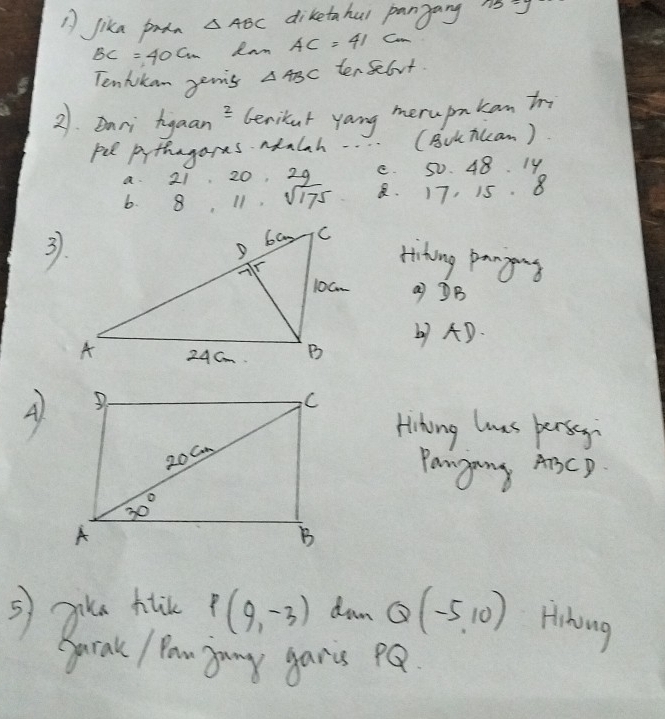 1) Jika pada △ ABC diketahui panjang AB = 9
BC = 40 Cm dan AC = 41 Cm
Tentukan jenis △ ABC tersebut.
2). Dari tigaan ² berikut yang merupakan tri
pel pythagoras adalah .... (Buktikan).
a. 21 . 20 . 29 c. 50. 48 . 14
b. 8 , 11 . √175 d. 17. 15 . 8
3). D 6cm C
10cm
A 24 Cm. B
Hitung panjang
a) DB
b) AD.
4) D C
20 Cm
30°
A B
Hitung luas persegi
Panjang ABCD.
5) Jika titik P(9,-3) dan Q(-5,10) Hitung
Jarak/Panjang garis PQ.